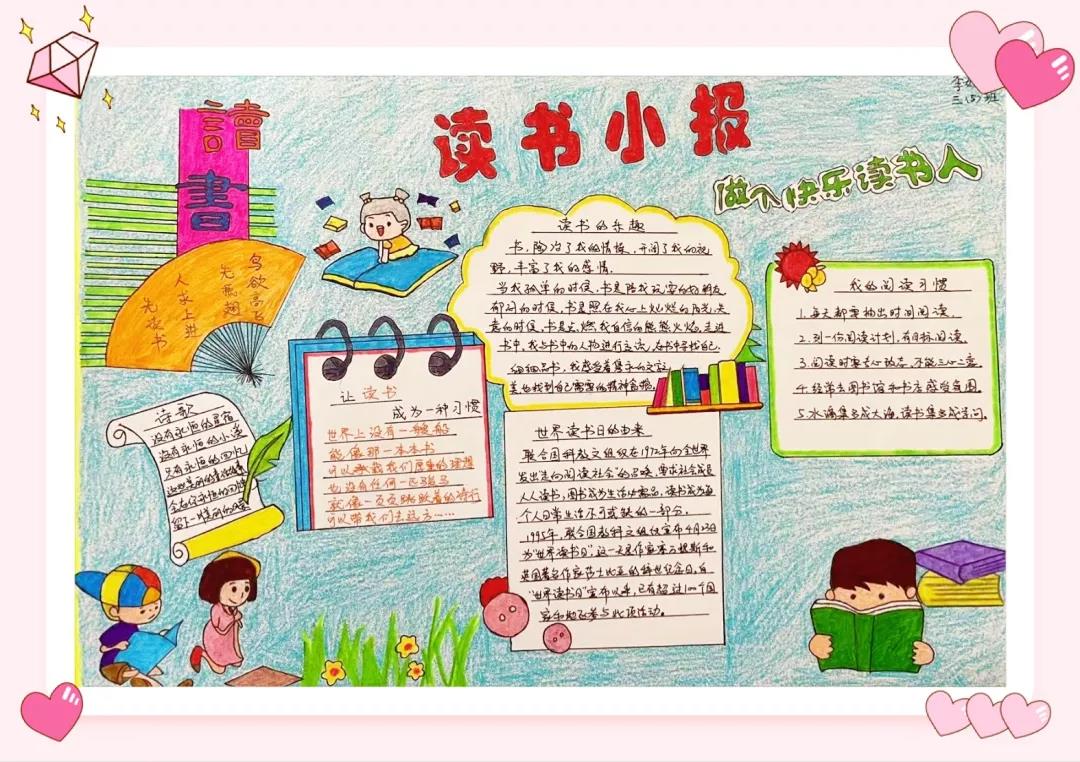 读书小报
做个快乐读书人
三(5)班
讀書
鸟欲高飞
先振翅
人求上进
先读书
诗歌
没有永恒的星宿
没有永恒的小溪
只有永恒的回忆
让读书
成为一种习惯
世界上没有一艘船
能像那一本本书
可以承载我们厚重的理想
也没有任何一匹骏马
就像一页页跳跃着的诗行
可以带我们去远方……
读书的乐趣
书,陶冶了我的情操,开阔了我的视
野,丰富了我的感情。
当我孤单的时候,书是陪我玩耍的好朋友
郁闷的时候,书是照在我心上灿烂的阳光,失
意的时候,书是点燃我自信的熊熊火焰。走进
书中,我与书中的人物进行交谈,在书中寻找自己,
细细品书,我感受着隽永的文字,
并也找到自己需要的精神食粮。
世界读书日的由来
联合国科教文组织在1972年向全世界
发出走向阅读社会的召唤,要求社会成员
人人读书,图书成为生活必需品,读书成为每
个人日常生活不可或缺的一部分。
1995年,联合国教科文组织宣布4月23日
为“世界读书日”,这一天是作家塞万提斯和
英国著名作家莎士比亚的辞世纪念日,自
“世界读书日”宣布以来,已有超过100个国
家和地区参与此项活动。
我的阅读习惯
1.每天都要抽出时间阅读。
2.列一份阅读计划,有目标阅读。
3.阅读时要专心致志,不能三心二意
4.经常去图书馆和书店感受氛围。
5.水滴集多成大海,读书集多成学问。